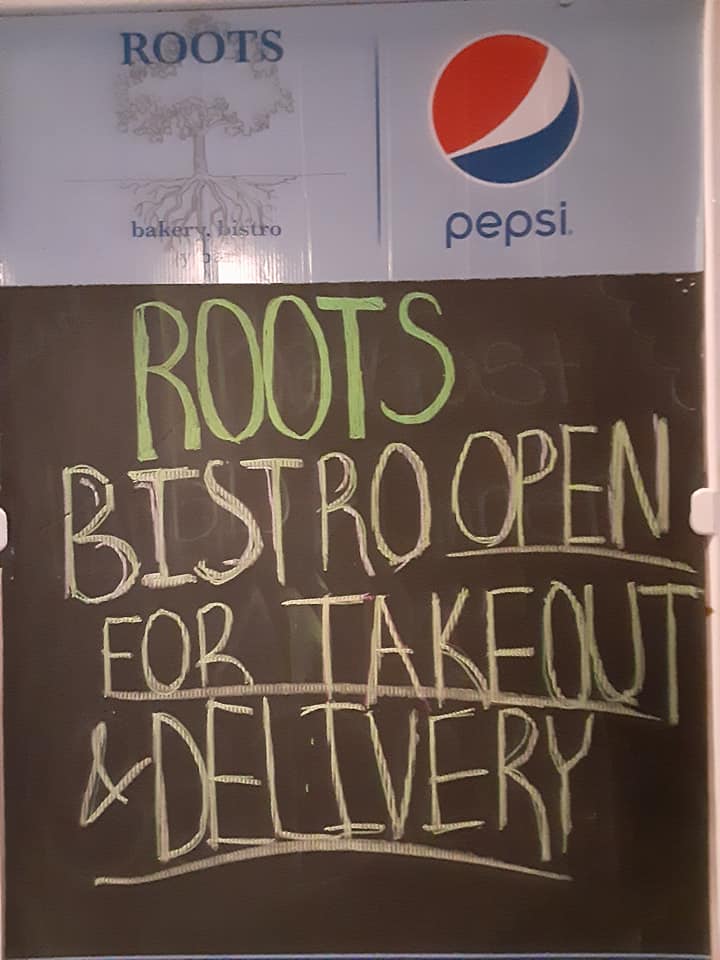 ROOTS
bakery, bistro
pepsi
ROOTS
BISTRO OPEN
FOR TAKEOUT
& DELIVERY